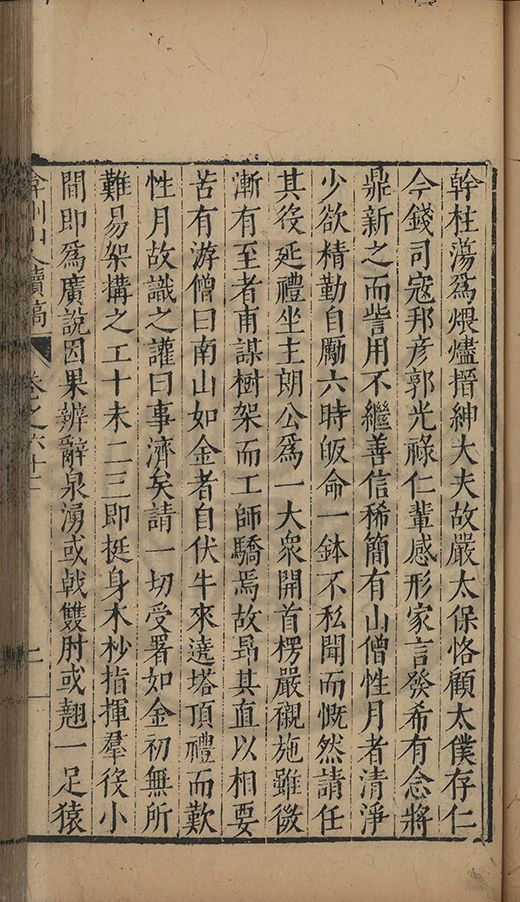 幹柱蕩爲煨燼搢紳大夫故嚴太保恪顧太僕存仁
今錢司寇邦彦郭光祿仁輩感形家言發希有念將
鼎新之而訾用不繼善信稀簡有山僧性月者清淨
少欲精勤自勵六時皈命一鉢不私聞而慨然請任
其役延禮坐主朗公爲一大衆開首楞嚴襯施雖微
漸有至者甫謀樹架而工師驕焉故昻其直以相要
苦有游僧曰南山如金者自伏牛來遶塔頂禮而歎
性月故識之讙曰事濟矣請一切受署如金初無所
難易架搆之工十未二三即挺身木杪指揮羣役小
間即爲廣說因果辨辭泉湧或戟雙肘或翹一足猿
弇州山人續稿
卷之六十二
二